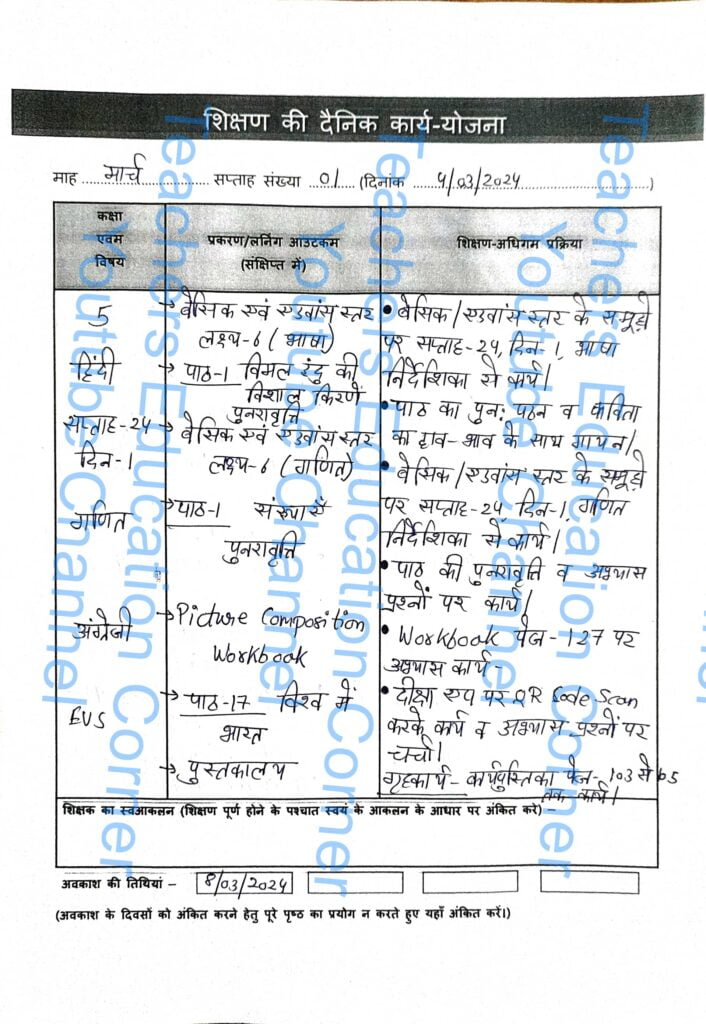 शिक्षण की दैनिक कार्य-योजना
माह मार्च सप्ताह संख्या 01 (दिनांक 4/03/2024)
कक्षा
एवम
विषय
प्रकरण/लर्निंग आउटकम
(संक्षिप्त में)
शिक्षण-अधिगम प्रक्रिया
5
हिंदी
सप्ताह-24
दिन-1
गणित
अंग्रेजी
EVS
→ बेसिक एवं एडवांस स्तर
लक्ष्य-6 (भाषा)
→ पाठ-1 विमल इंदु की
विशाल किरणें
पुनरावृत्ति
→ बेसिक एवं एडवांस स्तर
लक्ष्य-6 (गणित)
→ पाठ-1 संख्याएँ
पुनरावृत्ति
→ Picture Composition
Workbook
→ पाठ-17 विश्व में
भारत
→ पुस्तकालय
• बेसिक/एडवांस स्तर के समूहों
पर सप्ताह-24, दिन-1, भाषा
निर्देशिका से कार्य।
• पाठ का पुन: पठन व कविता
का हाव-भाव के साथ गायन।
• बेसिक/एडवांस स्तर के समूहों
पर सप्ताह-24, दिन-1, गणित
निर्देशिका से कार्य।
• पाठ की पुनरावृत्ति व अभ्यास
प्रश्नों पर कार्य।
• Workbook पेज-127 पर
अभ्यास कार्य-
• दीक्षा एप पर QR Code Scan
करके कार्य व अभ्यास प्रश्नों पर
चर्चा।
गृहकार्य- कार्यपुस्तिका पेज-103 से
तक कार्य।
शिक्षक का स्वआकलन (शिक्षण पूर्ण होने के पश्चात स्वयं के आकलन के आधार पर अंकित करें) -
अवकाश की तिथियां - 8/03/2024
(अवकाश के दिवसों को अंकित करने हेतु पूरे पृष्ठ का प्रयोग न करते हुए यहाँ अंकित करें।)
Teachers Education Corner
Youtube Channel
Teachers Education Corner
Youtube Channel
Teachers Education Corner
Youtube Channel